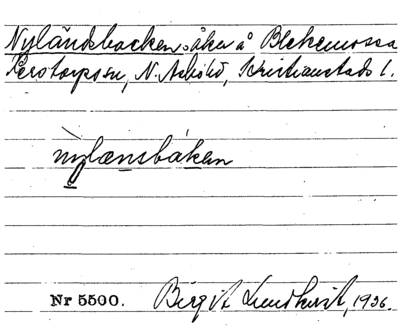 Nyländsbacken, åker å Blekemossa
Perstorps sn, N. Åsbo hd, Kristianstads l.
nylænsbáken
Nr 5500. Birgit Lundkvist, 1936.